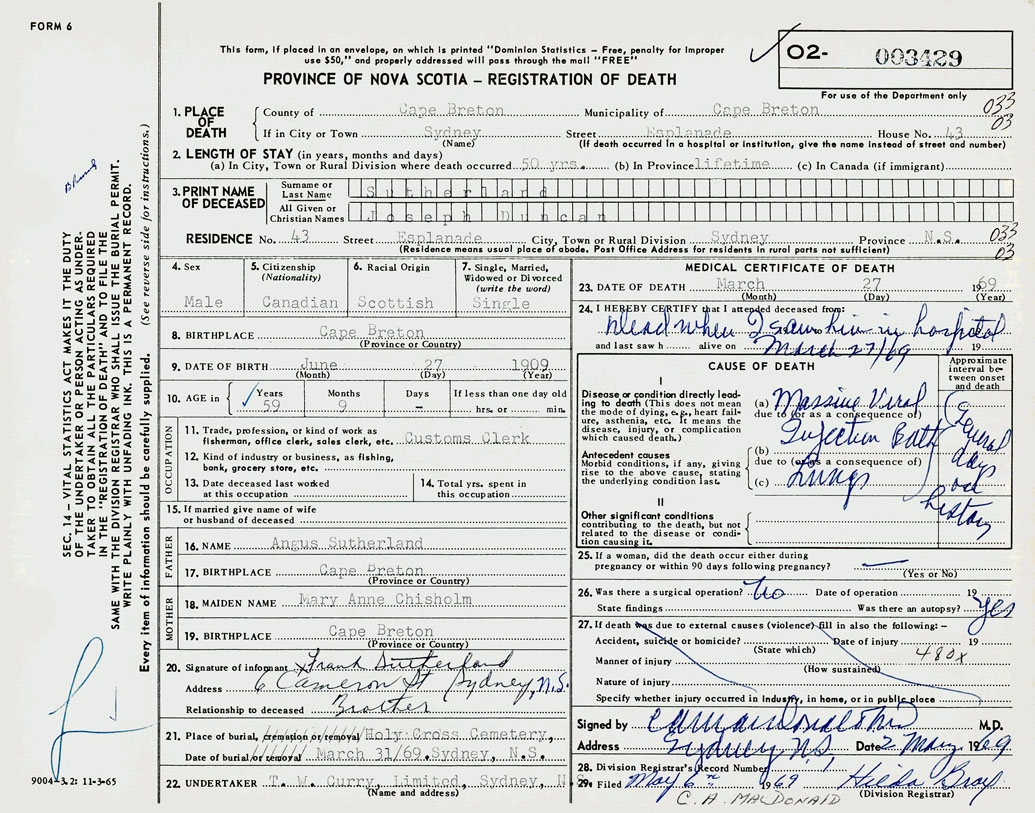 FORM 6
This form, if placed in an envelope, on which is printed "Dominion Statistics – Free, penalty for improper
use $50," and properly addressed will pass through the mail "FREE"
PROVINCE OF NOVA SCOTIA – REGISTRATION OF DEATH
02- 003429
For use of the Department only
033
03
1. PLACE OF DEATH
County of Cape Breton Municipality of Cape Breton
If in City or Town Sydney Street Esplanade House No. 43
(Name) (If death occurred in a hospital or institution, give the name instead of street and number)
2. LENGTH OF STAY (in years, months and days)
(a) In City, Town or Rural Division where death occurred 50 yrs. (b) In Province lifetime (c) In Canada (if immigrant)
3. PRINT NAME OF DECEASED
Surname or Last Name Sutherland
All Given or Christian Names Joseph Duncan
RESIDENCE No. 43 Street Esplanade City, Town or Rural Division Sydney Province N.S. 033
(Residence means usual place of abode. Post Office Address for residents in rural parts not sufficient) 03
4. Sex
Male
5. Citizenship (Nationality)
Canadian
6. Racial Origin
Scottish
7. Single, Married, Widowed or Divorced (write the word)
Single
8. BIRTHPLACE Cape Breton
(Province or Country)
9. DATE OF BIRTH June 27 1909
(Month) (Day) (Year)
10. AGE in Years Months Days If less than one day old
59 9 – hrs. or min.
OCCUPATION
11. Trade, profession, or kind of work as
fisherman, office clerk, sales clerk, etc. Customs Clerk
12. Kind of industry or business, as fishing,
bank, grocery store, etc.
13. Date deceased last worked
at this occupation
14. Total yrs. spent in
this occupation
15. If married give name of wife
or husband of deceased
FATHER
16. NAME Angus Sutherland
17. BIRTHPLACE Cape Breton
(Province or Country)
MOTHER
18. MAIDEN NAME Mary Anne Chisholm
19. BIRTHPLACE Cape Breton
(Province or Country)
20. Signature of informant Frank Sutherland
Address 6 Cameron St Sydney, N.S.
Relationship to deceased Brother
21. Place of burial, cremation or removal Holy Cross Cemetery,
Date of burial or removal March 31/69. Sydney, N.S.
22. UNDERTAKER T. W. Curry, Limited, Sydney, N.S.
(Name and address)
MEDICAL CERTIFICATE OF DEATH
23. DATE OF DEATH March 27 1969
(Month) (Day) (Year)
24. I HEREBY CERTIFY that I attended deceased from:
Dead when I saw him in hospital
and last saw h alive on March 27/69 19
CAUSE OF DEATH
Approximate interval between onset and death
I
Disease or condition directly leading
to death (This does not mean
the mode of dying, e.g., heart failure,
asthenia, etc. It means the
disease, injury, or complication
which caused death.)
(a) Massive Viral
due to (or as a consequence of)
Infection Both
Antecedent causes
Morbid conditions, if any, giving
rise to the above cause, stating
the underlying condition last.
(b)
due to (or as a consequence of)
(c) Lungs
Several days
history
II
Other significant conditions
contributing to the death, but not
related to the disease or condition
causing it.
25. If a woman, did the death occur either during
pregnancy or within 90 days following pregnancy? —
(Yes or No)
26. Was there a surgical operation? No Date of operation 19
State findings Was there an autopsy? Yes
27. If death was due to external causes (violence) fill in also the following: –
Accident, suicide or homicide? Date of injury 19
(State which) 480x
Manner of injury
(How sustained)
Nature of injury
Specify whether injury occurred in industry, in home, or in public place
Signed by M.D.
Address Sydney N.S. Date 2 May 1969
28. Division Registrar's (Record Number)
29. Filed May 6th 1969 Hilda Bray
(Division Registrar)
C. A. MACDONALD
SEC. 14 – VITAL STATISTICS ACT MAKES IT THE DUTY
OF THE UNDERTAKER OR PERSON ACTING AS UNDERTAKER
TO OBTAIN ALL THE PARTICULARS REQUIRED
IN THE "REGISTRATION OF DEATH" AND TO FILE THE
SAME WITH THE DIVISION REGISTRAR WHO SHALL ISSUE THE BURIAL PERMIT.
WRITE PLAINLY WITH UNFADING INK. THIS IS A PERMANENT RECORD.
Every item of information should be carefully supplied. (See reverse side for instructions.)
9004-3.2: 11-3-65